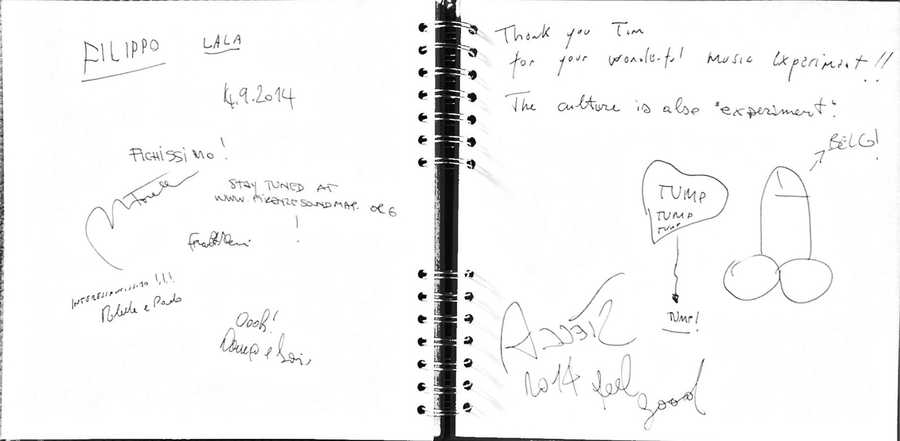 FILIPPO LALA
14.9.2014
FICHISSIMO!
STAY TUNED AT
WWW.FIRENZESOUNDMAP.ORG
!
INTERESSANTISSIMO!!!!
Oooh!
Thank you Tim
for your wonderful music experiment!!
The culture is also "experiment".
BELG!
TUMP
TUMP
TUMP
TUMP!
2014 feel
good